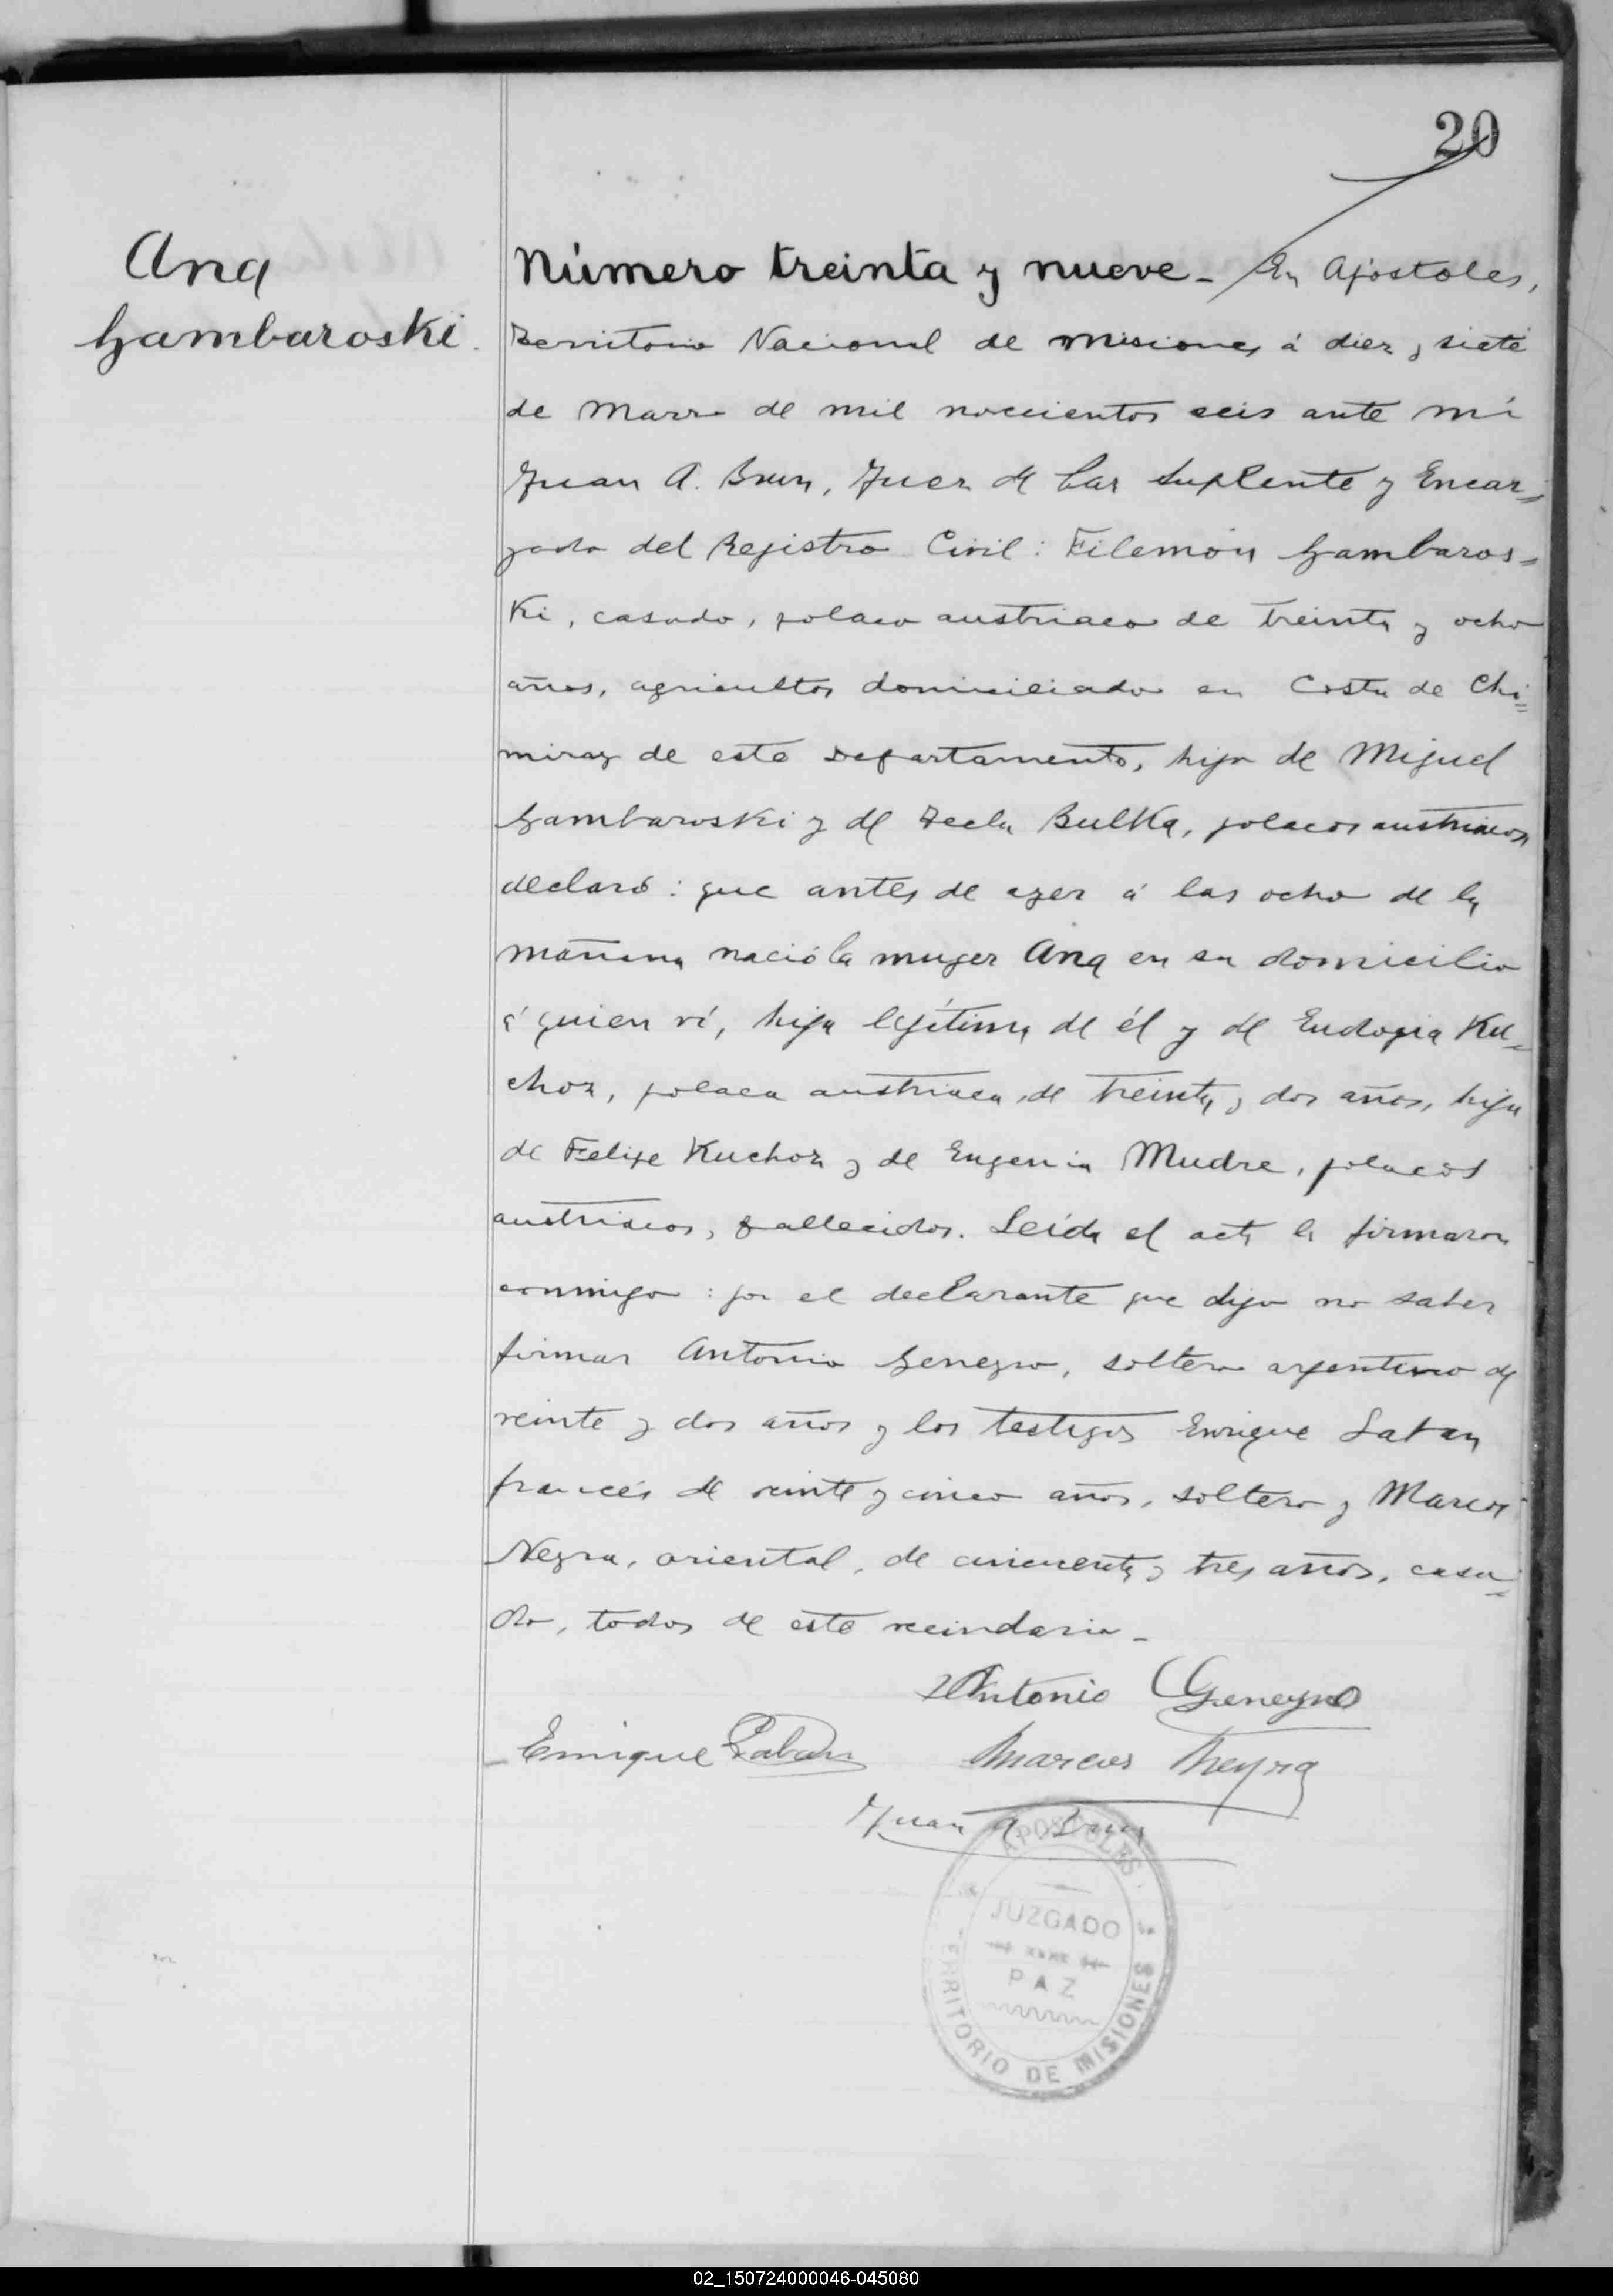 20
Ana
Gambaroski.
Número treinta y nueve - En Apóstoles,
Territorio Nacional de Misiones á diez y siete
de Marzo de mil novecientos seis ante mí
Juan A. Brun, Juez de Paz Suplente y Encar=
gado del Registro Civil: Filemón Gambaros=
ki, casado, polaco austriaco de treinta y ocho
años, agricultor domiciliado en Costa de Chi=
miray de este Departamento, hijo de Miguel
Gambaroski y de Tecla Bulka, polacos austriacos
declaró: que antes de ayer á las ocho de la
mañana nació la muger Ana en su domicilio
á quien ví, hija legítima de él y de Eudogia Ku=
choz, polaca austriaca, de treinta y dos años, hija
de Felipe Kuchoz y de Eugenia Mudre, polacos
austriacos, fallecidos. Leída el acta la firmaron
conmigo: por el declarante que dijo no saber
firmar Antonio Geneyro, soltero argentino de
veinte y dos años y los testigos Enrique Laban
francés de veinte y cinco años, soltero y Marcos
Neyra, oriental, de cincuenta y tres años, casa=
do, todos de este vecindario -
Antonio Geneyro
Enrique Laban Marcos Neyra
Juan A. Brun
APOSTOLES
JUZGADO
PAZ
TERRITORIO DE MISIONES
02_150724000046-045080